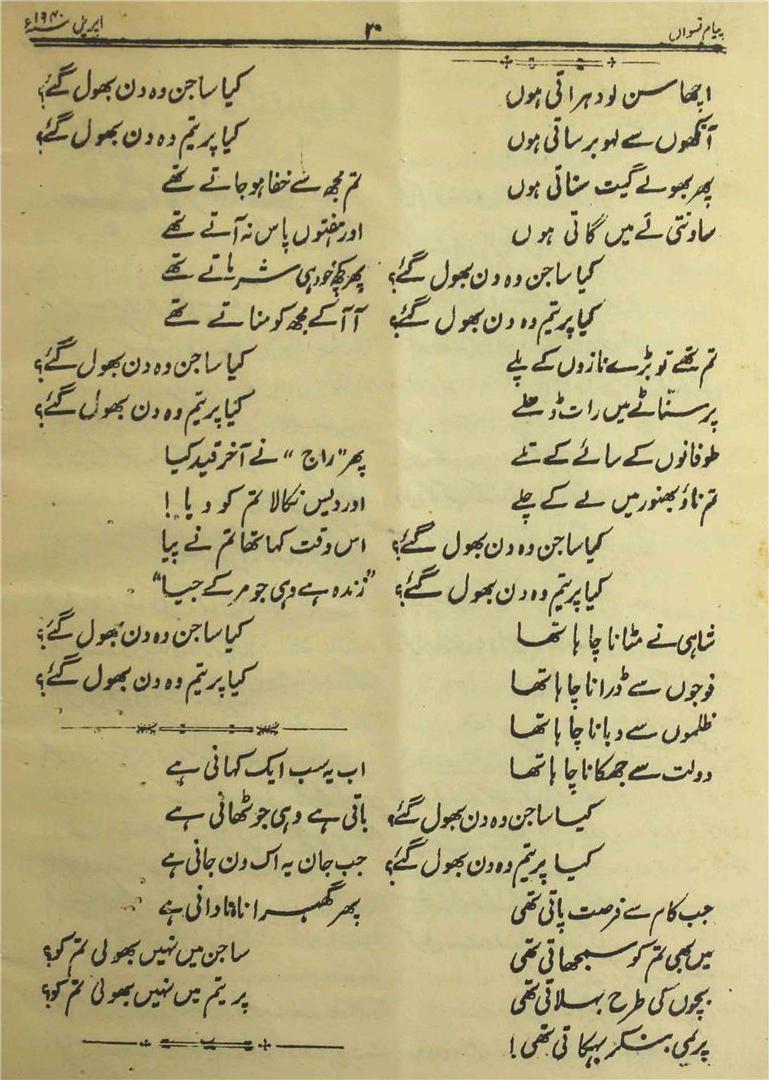 پیام نسواں
۳۰
اپریل سنہ ۱۹۴۰ء
اچھا سن لو دہراتی ہوں
آنکھوں سے لہو برساتی ہوں
پھر بھولے گیت سناتی ہوں
ساونتی لے میں گاتی ہوں
کیا ساجن وہ دن بھول گئے؟
کیا پریتم وہ دن بھول گئے؟
تم تھے تو بڑے نازوں کے پلے
پر سنّاٹے میں رات ڈھلے
طوفانوں کے سائے کے تلے
تم ناؤ بھنور میں لے کے چلے
کیا ساجن وہ دن بھول گئے؟
کیا پریتم وہ دن بھول گئے؟
شاہی نے مٹانا چاہا تھا
فوجوں سے ڈرانا چاہا تھا
ظلموں سے دبانا چاہا تھا
دولت سے جھکانا چاہا تھا
کیا ساجن وہ دن بھول گئے؟
کیا پریتم وہ دن بھول گئے؟
جب کام سے فرصت پاتی تھی
میں بھی تم کو سمجھاتی تھی
بچوں کی طرح بہلاتی تھی
پریمی بنکر بہکاتی تھی!
کیا ساجن وہ دن بھول گئے؟
کیا پریتم وہ دن بھول گئے؟
تم مجھ سے خفا ہو جاتے تھے
اور ہفتوں پاس نہ آتے تھے
پھر کچھ خود ہی شرماتے تھے
آ آ کے مجھ کو مناتے تھے
کیا ساجن وہ دن بھول گئے؟
کیا پریتم وہ دن بھول گئے؟
پھر "راج" نے آخر قید کیا
اور دیس نکالا تم کو دیا!
اس وقت کہا تھا تم نے پیا
"زندہ ہے وہی جو مر کے جیا"
کیا ساجن وہ دن بھول گئے؟
کیا پریتم وہ دن بھول گئے؟
اب یہ سب ایک کہانی ہے
باقی ہے وہی جو ٹھانی ہے
جب جان یہ اک دن جانی ہے
پھر گھبرانا نادانی ہے
ساجن میں نہیں بھولی تم کو؟
پریتم میں نہیں بھولی تم کو؟